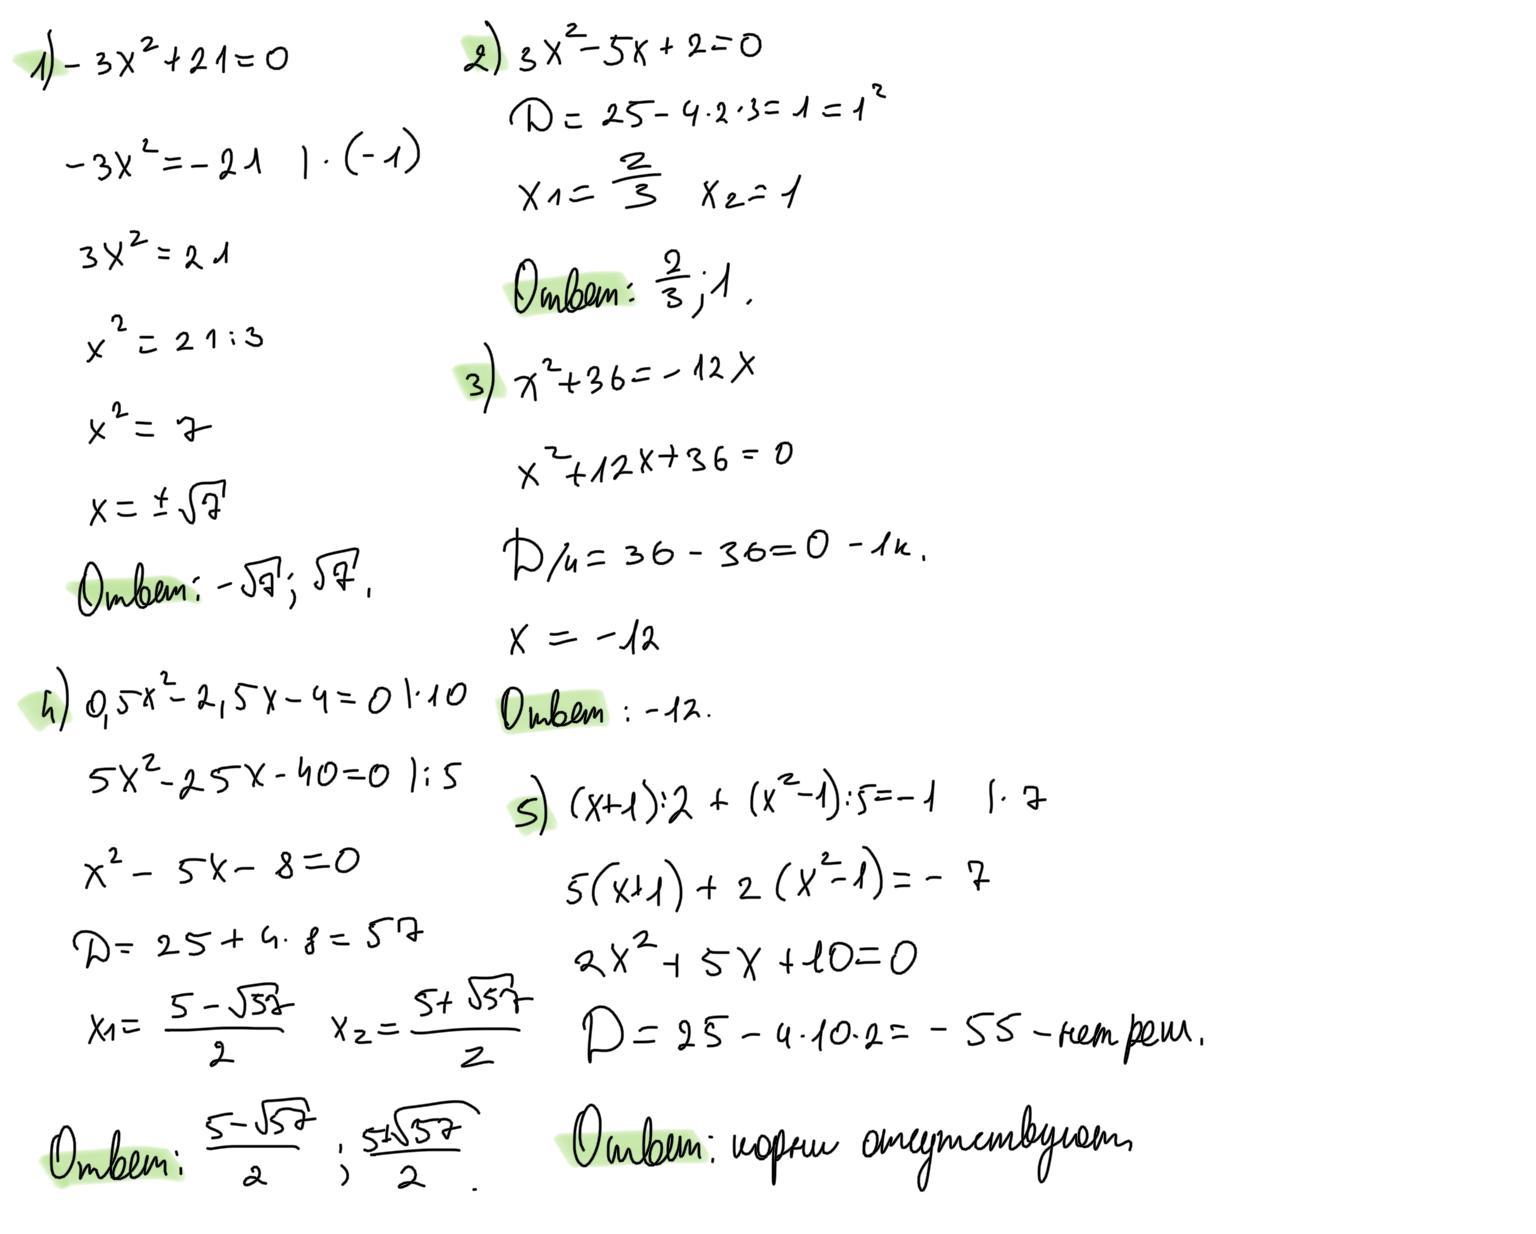 1) - 3x² + 21 = 0
-3x² = -21 | · (-1)
3x² = 21
x² = 21 : 3
x² = 7
x = ± √7
Ответ: -√7; √7.
2) 3x² - 5x + 2 = 0
D = 25 - 4·2·3 = 1 = 1²
x1 = 2/3 x2 = 1
Ответ: 2/3; 1.
3) x² + 36 = - 12x
x² + 12x + 36 = 0
D/4 = 36 - 36 = 0 - 1к.
x = -12
Ответ: -12.
4) 0,5x² - 2,5x - 4 = 0 | · 10
5x² - 25x - 40 = 0 | : 5
x² - 5x - 8 = 0
D = 25 + 4·8 = 57
x1 = (5 - √57)/2 x2 = (5 + √57)/2
Ответ: (5 - √57)/2 ; (5 + √57)/2.
5) (x+1):2 + (x²-1):5 = -1 | · 7
5(x+1) + 2(x²-1) = - 7
2x² + 5x + 10 = 0
D = 25 - 4·10·2 = - 55 - нет реш.
Ответ: корни отсутствуют